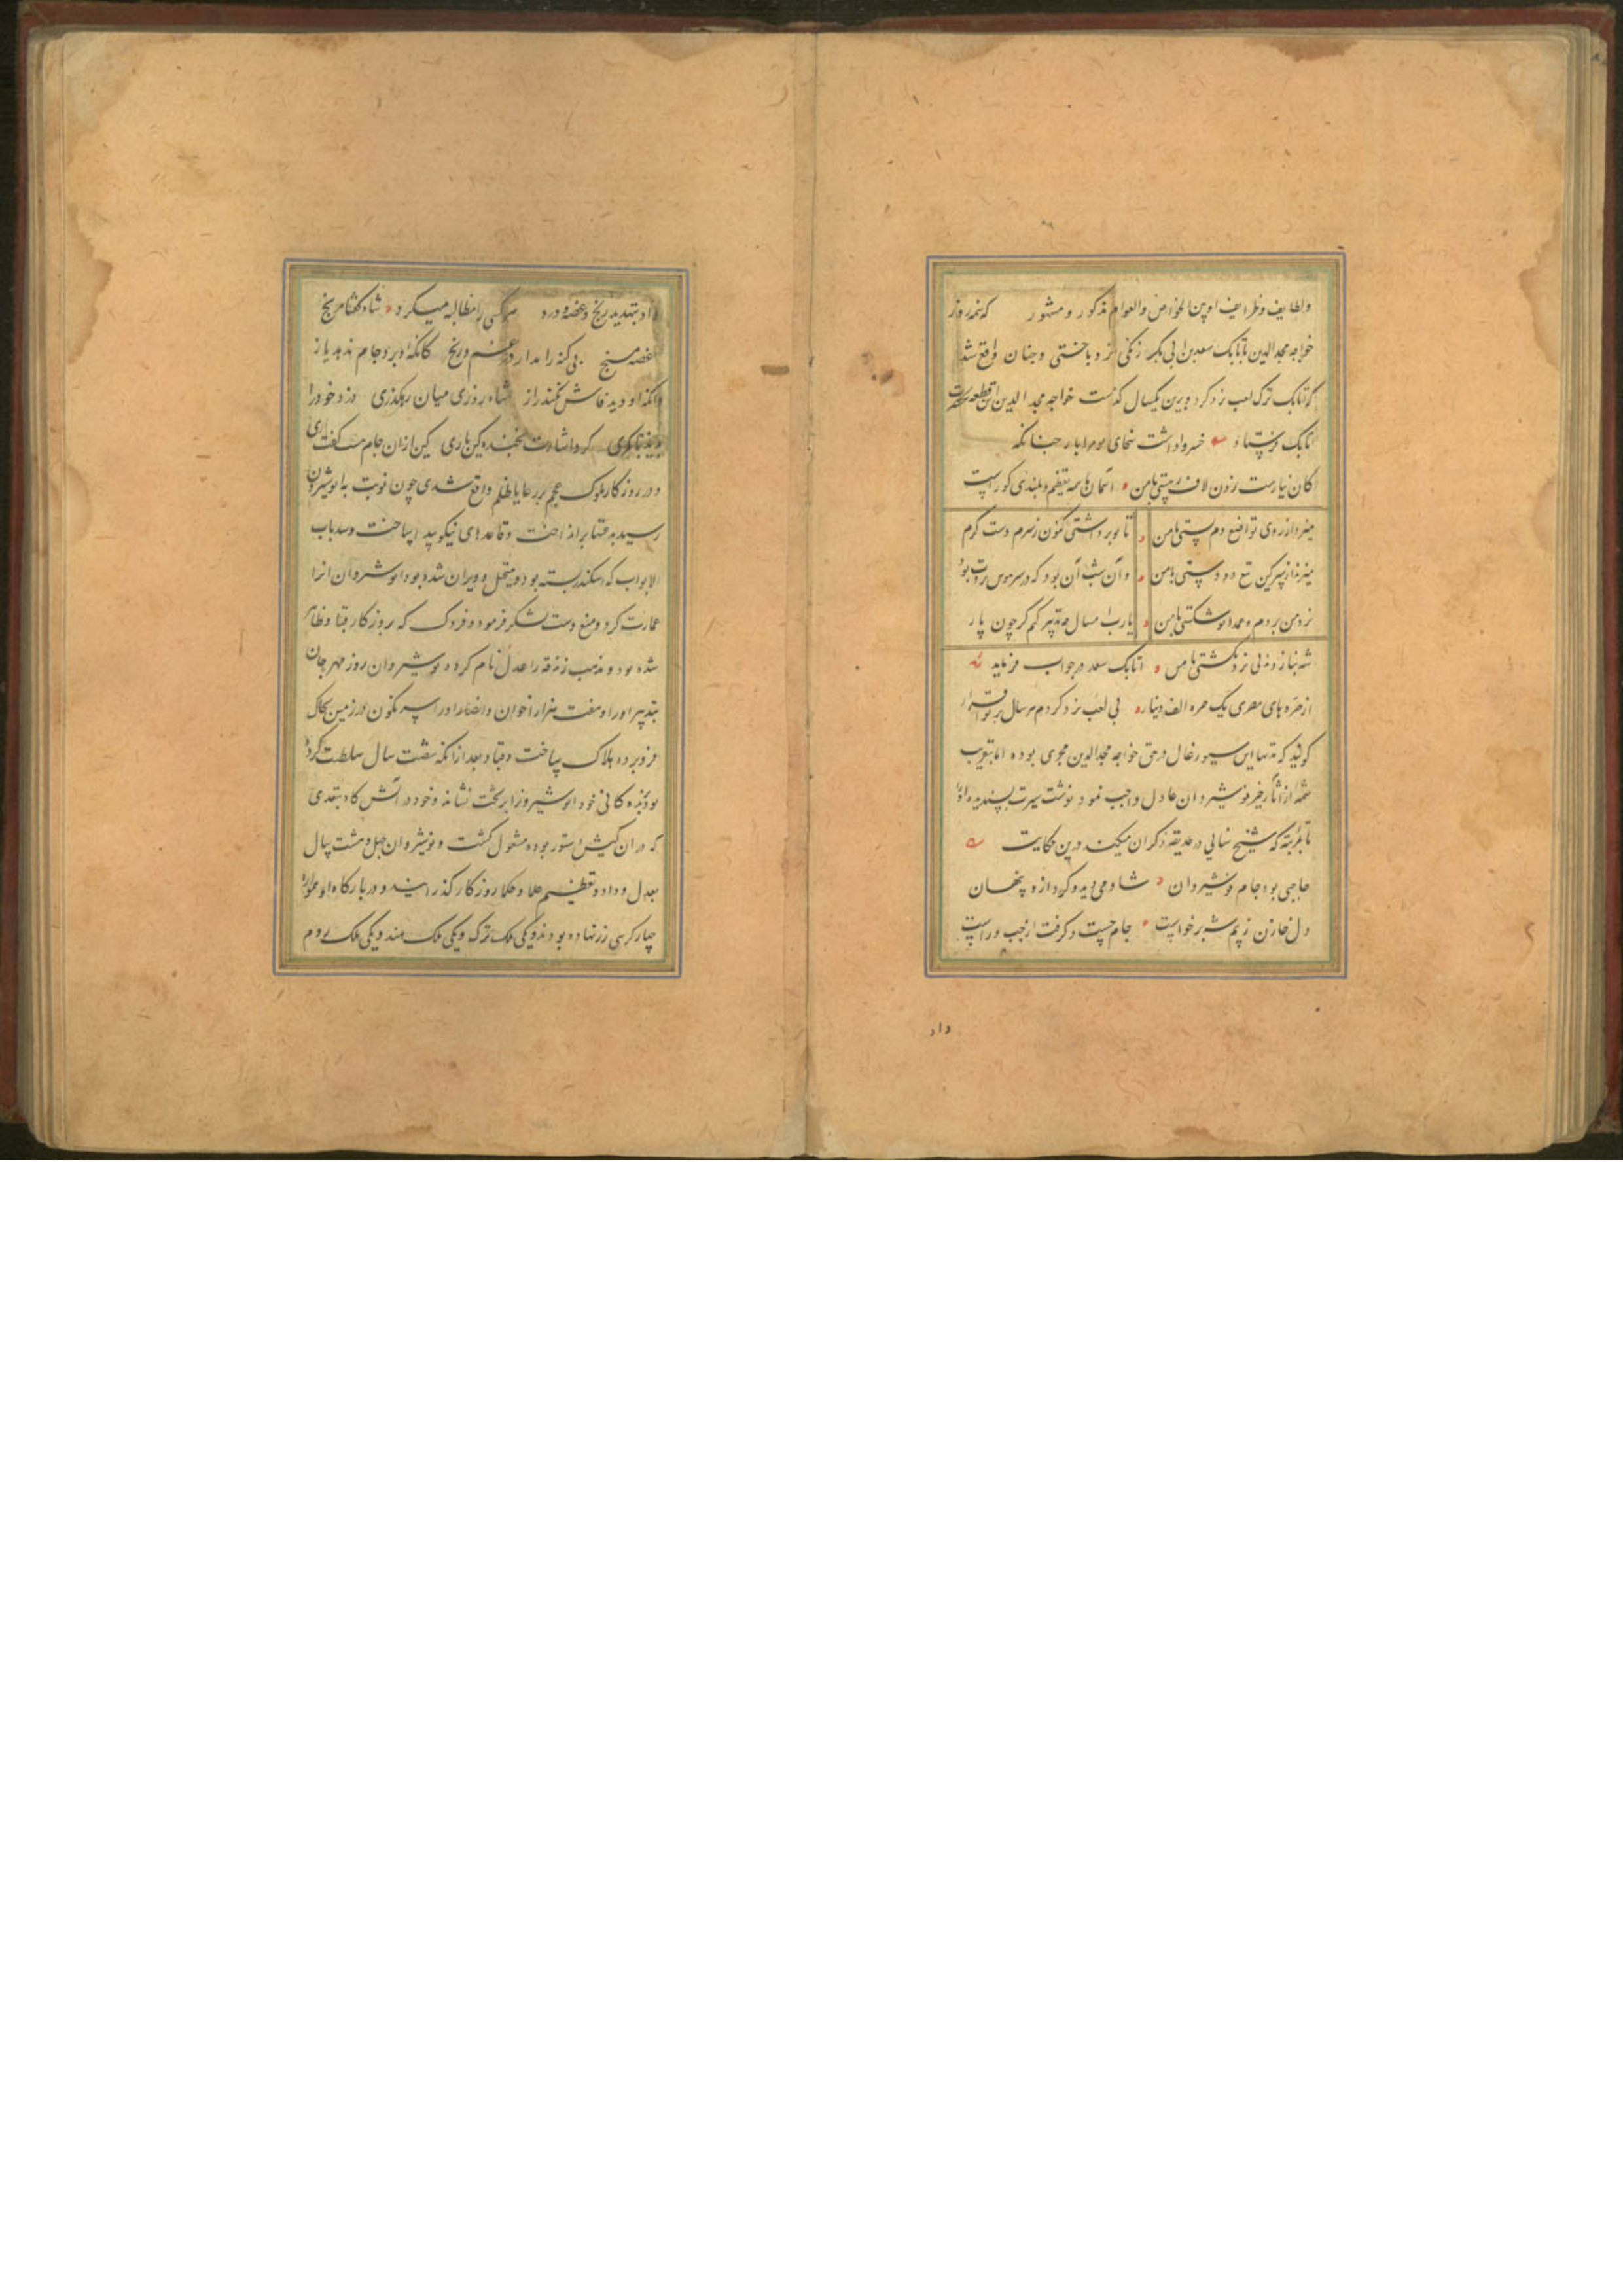 ولطایف وظرایف او بین الخواص والعوام مذکور و مشهور که نمد روز
خواجه مجد الدین با اتابک سعد بن ابی بکر زنگی نرد باختی وچنان واقع شد
که اتابک ترک لعب نرد کرد وبرین یکسال گذشت خواجه مجد الدین این قطعه
اتابک فرستاد خسروا داشت سخای
کان نیارست زدن لاف ز پستی با من آسمان با همه تعظیم و بلندی کوراست
میزد از روی تواضع دم پستی با من تا تو برداشتی کنون ز سرم دست کرم
میزند از سر کین تیغ دو دستی با من وآن شب آن بود که در سر هوس نردت بود
نرد من بردم وعمدا تو شکستی با من یا رب امسال چه تدبیر کنم کر چون پار
شه بناز ودنی نرد نکشستی با من اتابک سعد در جواب فرماید
از صره های مصری یک صره الف دینار بی لعب نرد کردم هر سال بر تو اقرار
کویند که نه تنها این سیورغال در حق خواجه مجد الدین مجری بوده اما بتقریب
شمه از آثار خیر نوشیروان عادل واجب نمود نوشت سیرت پسندیده او
تا بمرتبه که شیخ سنایی در حدیقه ذکر آن میکند درین حکایت
حاجبی برد جام نوشیروان شاه می دید و کرد ازو پنهان
دل خازن ز بیم شه برخواست جام جست وگرفت از چپ وراست
داد
او بتهدید رنج وغصه ودرد هر کسی را مطالبه میکرد شاه گفتا مرنج
غصه مسنج بی گنه را مدار در غم ورنج کانکه او برد جام ندهد باز
وانکه او دید فاش نکند راز شاه روزی میان رهگذری دزد خود را
بدید با کمری کرد اشارت بخنده کین باری کین از ان جام هست گفت آری
ودر روزکار ملوک عجم بر رعایا ظلم واقع شدی چون نوبت به انوشیروان
رسید بدعتها برانداخت وقاعدهای نیکو پیدا ساخت وسد باب
الابواب که اسکندر بسته بود ومختل و ویران شده بود انوشروان آنرا
عمارت کرد ومنع دست لشکر فرمود ومزدک که بروزکار قباد ظاهر
شده بود ومذهب زندقه را عدل نام کرده نوشیروان روز مهرجان
بتدبیر او را وهفت هزار اخوان وانصار او را سر نکون در زمین بخاک
فرو برده هلاک ساخت وقباد بعد از آنکه شصت سال سلطنت کرده
بود بزندکانی خود انوشیروان را بر تخت نشاند وخود در آتش کاه بتعبدی
که در ان کیش دستور بوده مشغول گشت ونوشیروان چهل وهشت سال
بعدل وداد وتعظیم علما وحکما روزکار گذرانید ودر بارکاه او همواره
چهار کرسی زر نهاده بودند ویکی ملک ترک ویکی ملک هند ویکی ملک روم